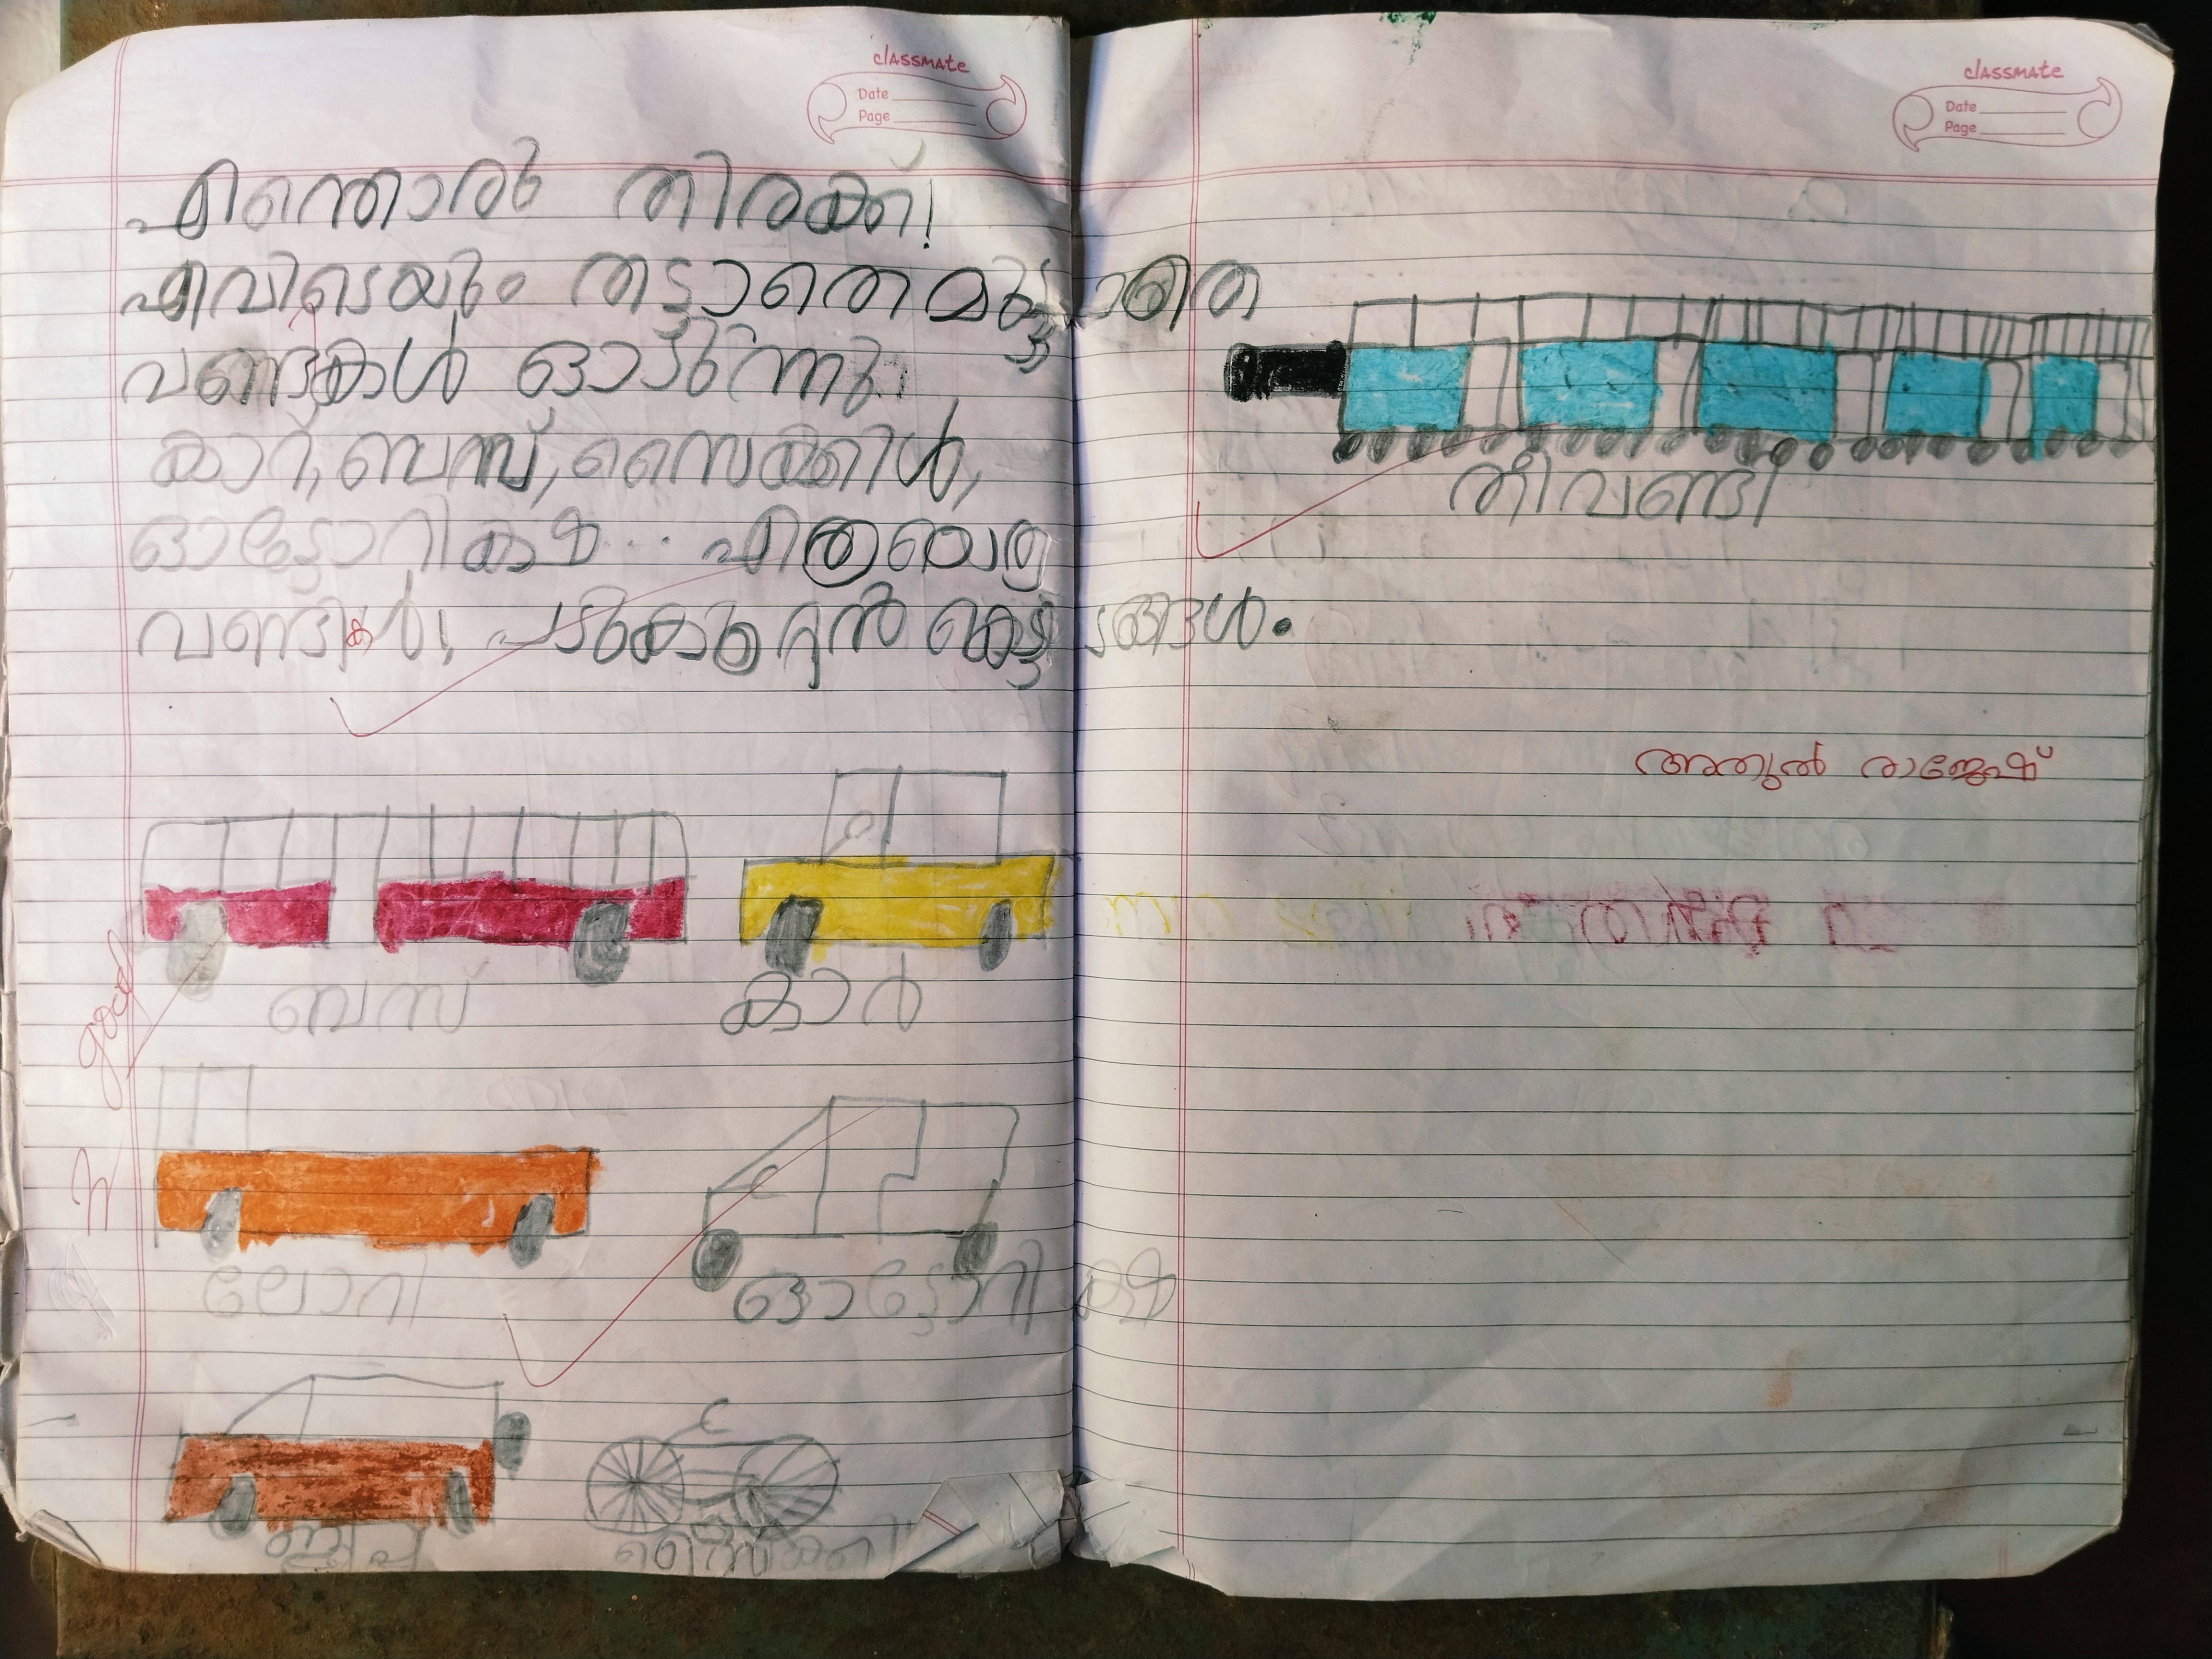 classmate
Date
Page
എന്തൊരു തിരക്ക്!
എവിടെയും തട്ടാതെ മുട്ടാതെ
വണ്ടികൾ ഓടുന്നു.
കാറ്, ബസ്, സൈക്കിൾ,
ഓട്ടോറിക്ഷ... എത്രയെത്ര
വണ്ടികൾ! പടുകൂറ്റൻ കെട്ടിടങ്ങൾ.
ബസ്
കാർ
good
ലോറി
ഓട്ടോറിക്ഷ
ജീപ്പ്
classmate
Date
Page
തീവണ്ടി
അതുൽ രാജേഷ്